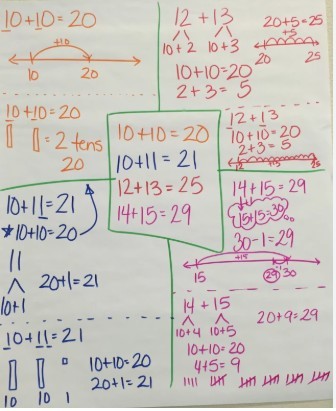 10+10=20
+10
10 20
10+10=20
= 2 tens
20
12 + 13
10+2 10+3
10+10=20
2+3= 5
20+5=25
+5
20 25
12+13
10+10=20
2+3=5
12 25
10+10=20
10+11=21
12+13=25
14+15=29
10+11=21
*10+10=20
11
10+1
20+1=21
10+11=21
10 10 1
10+10=20
20+1=21
14+15=29
15+15=30
30-1=29
+15
15 29 30
14 + 15
10+4 10+5
20+9=29
10+10=20
4+5=9